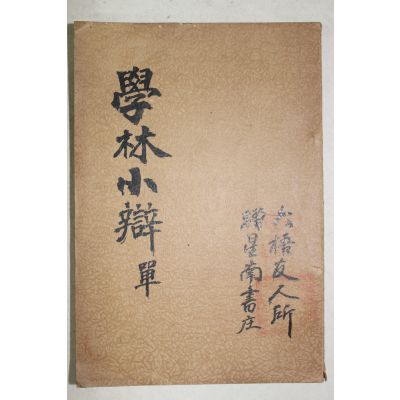 學林小辯 單
六梧友人所
贈星南書庄